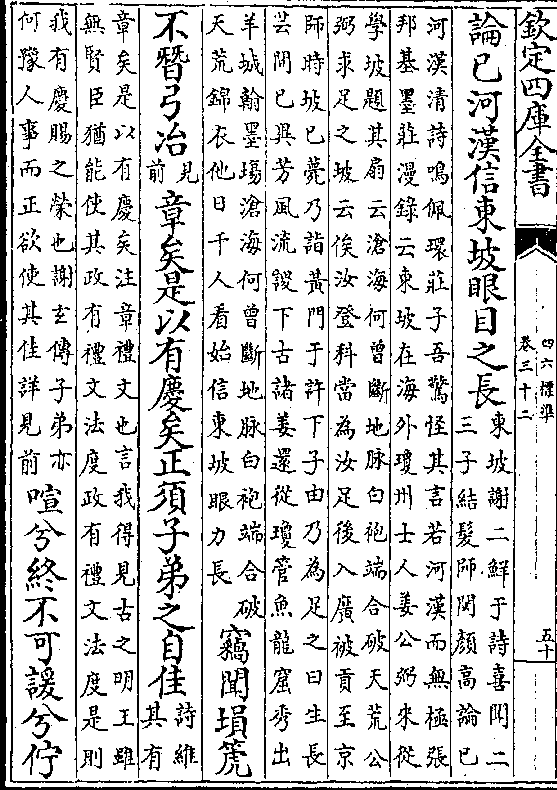 欽定四庫全書
四六標準
卷三十二
五十
論已河漢信東坡眼目之長
東坡謝二鮮于詩喜聞二
三子結髮師閔顏高論已
河漢清詩鳴佩環莊子吾驚怪其言若河漢而無極張
邦基墨莊漫錄云東坡在海外瓊州士人姜公弼來從
學坡題其扇云滄海何曾斷地脉白袍端合破天荒公
弼求足之坡云俟汝登科當為汝足後入廣被貢至京
師時坡已薨乃詣黃門于許下子由乃為足之曰生長
芸間已異芳風流稷下古諸姜還從瓊管魚龍窟秀出
羊城翰墨塲滄海何曾斷地脉白袍端合破
天荒錦衣他日千人看始信東坡眼力長
竊聞塤箎
不朁弓冶
見
前
章矣是以有慶矣正須子弟之自佳
詩維
其有
章矣是以有慶矣注章禮文也言我得見古之明王雖
無賢臣猶能使其政有禮文法度政有禮文法度是則
我有慶賜之榮也謝玄傳子弟亦
何豫人事而正欲使其佳詳見前
喧兮終不可諼兮佇